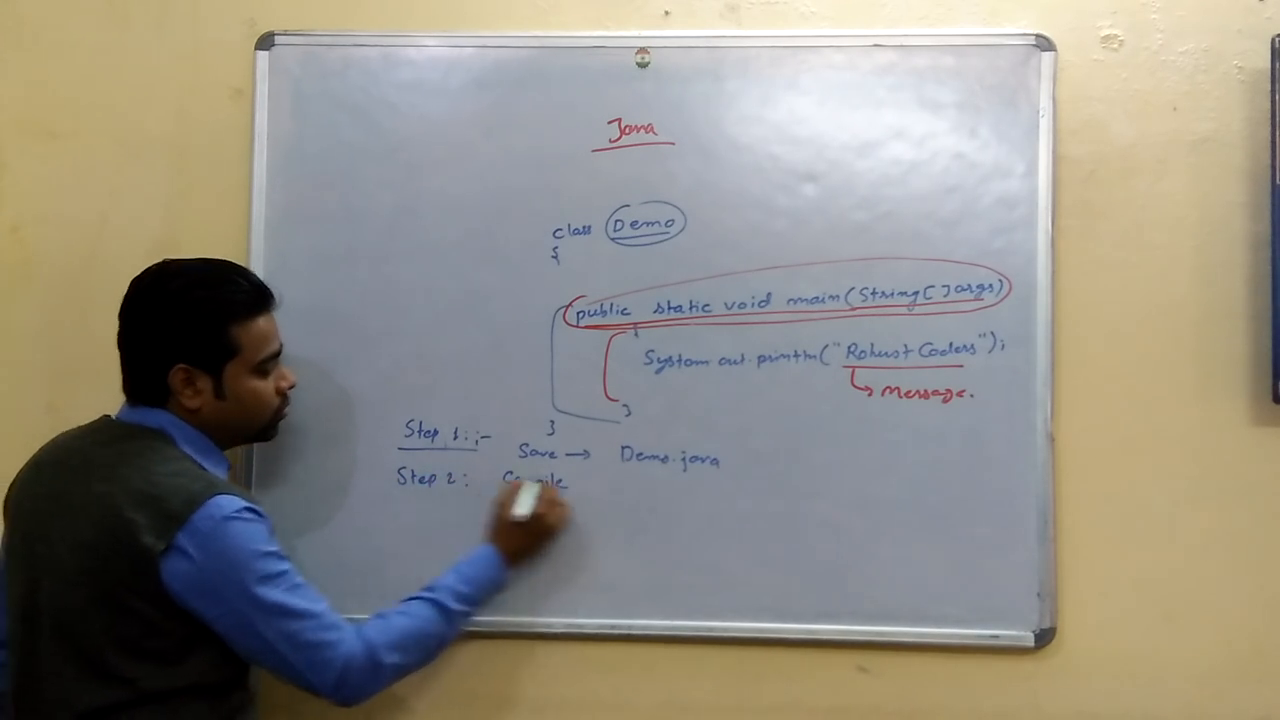 Java
class Demo
{
public static void main(String[] args)
{
System.out.println("Robust Coders");
Message.
}
}
Step 1:;-
Save → Demo.java
Step 2: